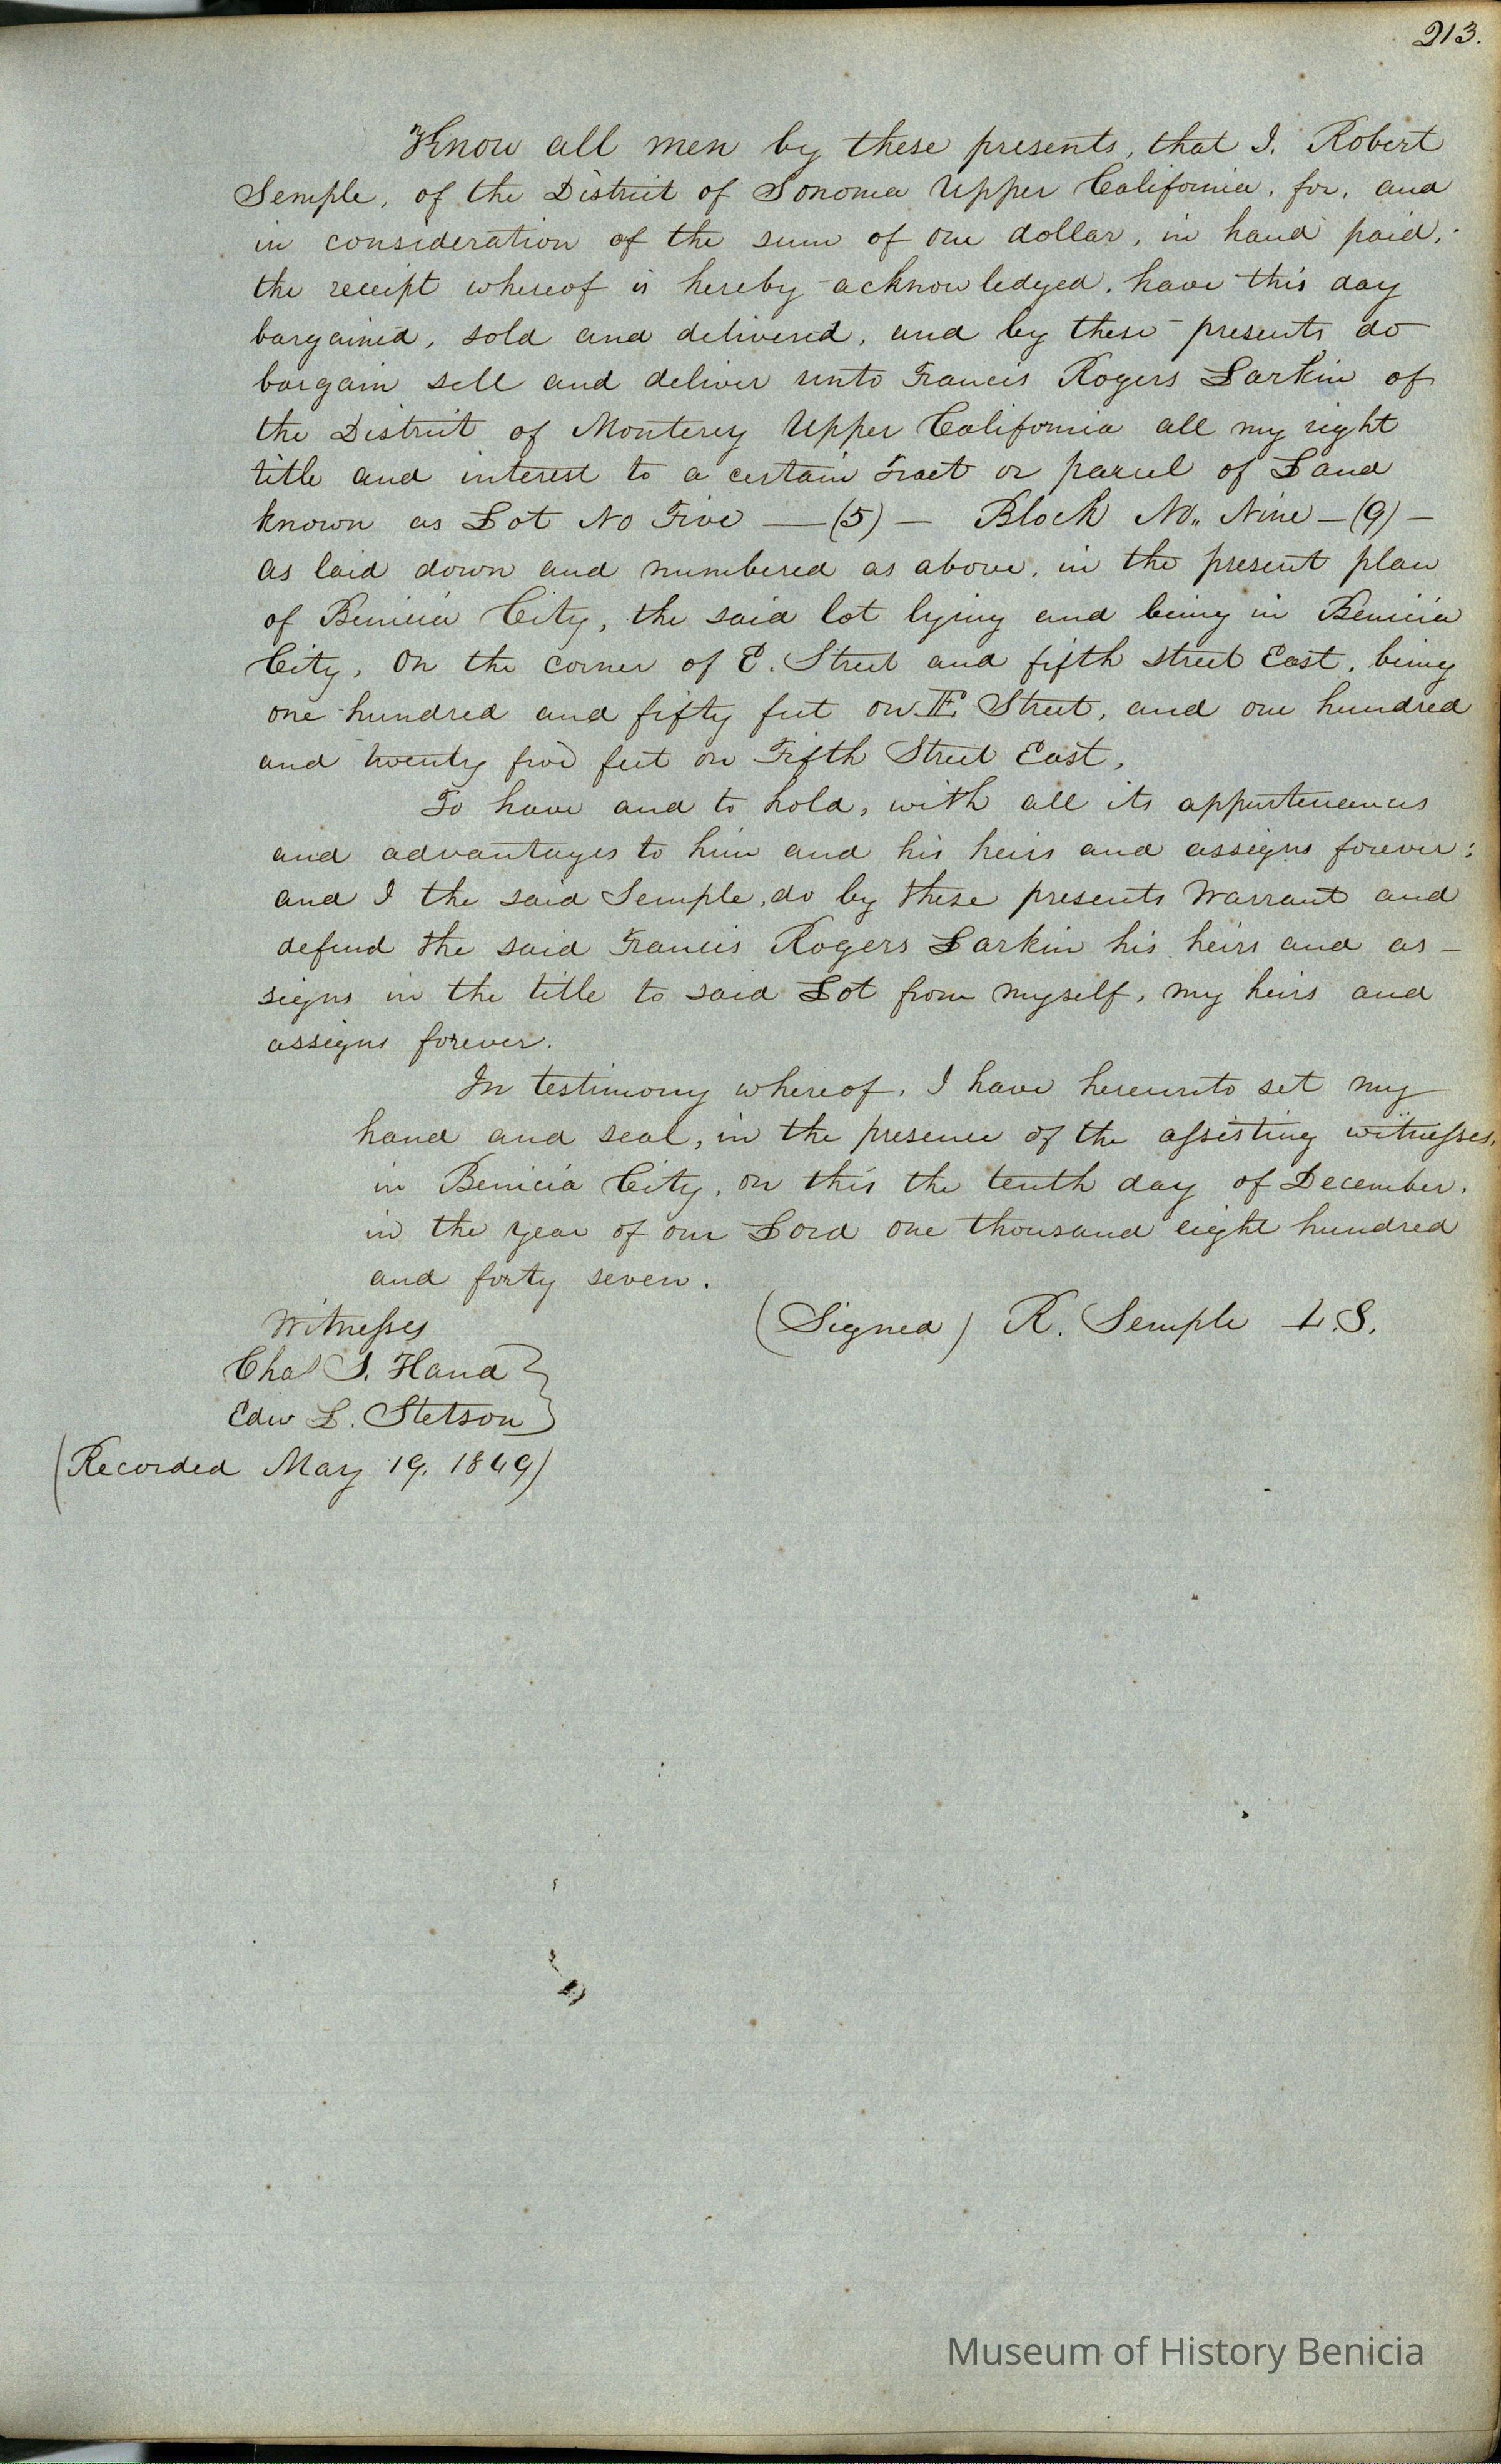 213.
Know all men by these presents, that I, Robert
Semple, of the District of Sonoma Upper California, for, and
in consideration of the sum of one dollar, in hand paid,
the receipt whereof is hereby acknowledged, have this day
bargained, sold and delivered, and by these presents do
bargain sell and deliver unto Francis Rogers Larkin of
the District of Monterey Upper California all my right
title and interest to a certain Tract or parcel of Land
known as Lot No Five — (5) — Block No. Nine — (9) —
as laid down and numbered as above, in the present plan
of Benicia City, the said lot lying and being in Benicia
City, on the corner of E. Street and fifth street East, being
one hundred and fifty feet on E. Street, and one hundred
and twenty five feet on Fifth Street East,
To have and to hold, with all its appurtenances
and advantages to him and his heirs and assigns forever;
and I the said Semple, do by these presents Warrant and
defend the said Francis Rogers Larkin his heirs and as-
signs in the title to said Lot from myself, my heirs and
assigns forever.
In testimony whereof, I have hereunto set my
hand and seal, in the presence of the assisting witnesses,
in Benicia City, on this the tenth day of December,
in the year of our Lord one thousand eight hundred
and forty seven.
Witnesses (Signed) R. Semple L.S.
Chas S. Hand
Edw L. Stetson
(Recorded May 19, 1849)
Museum of History Benicia